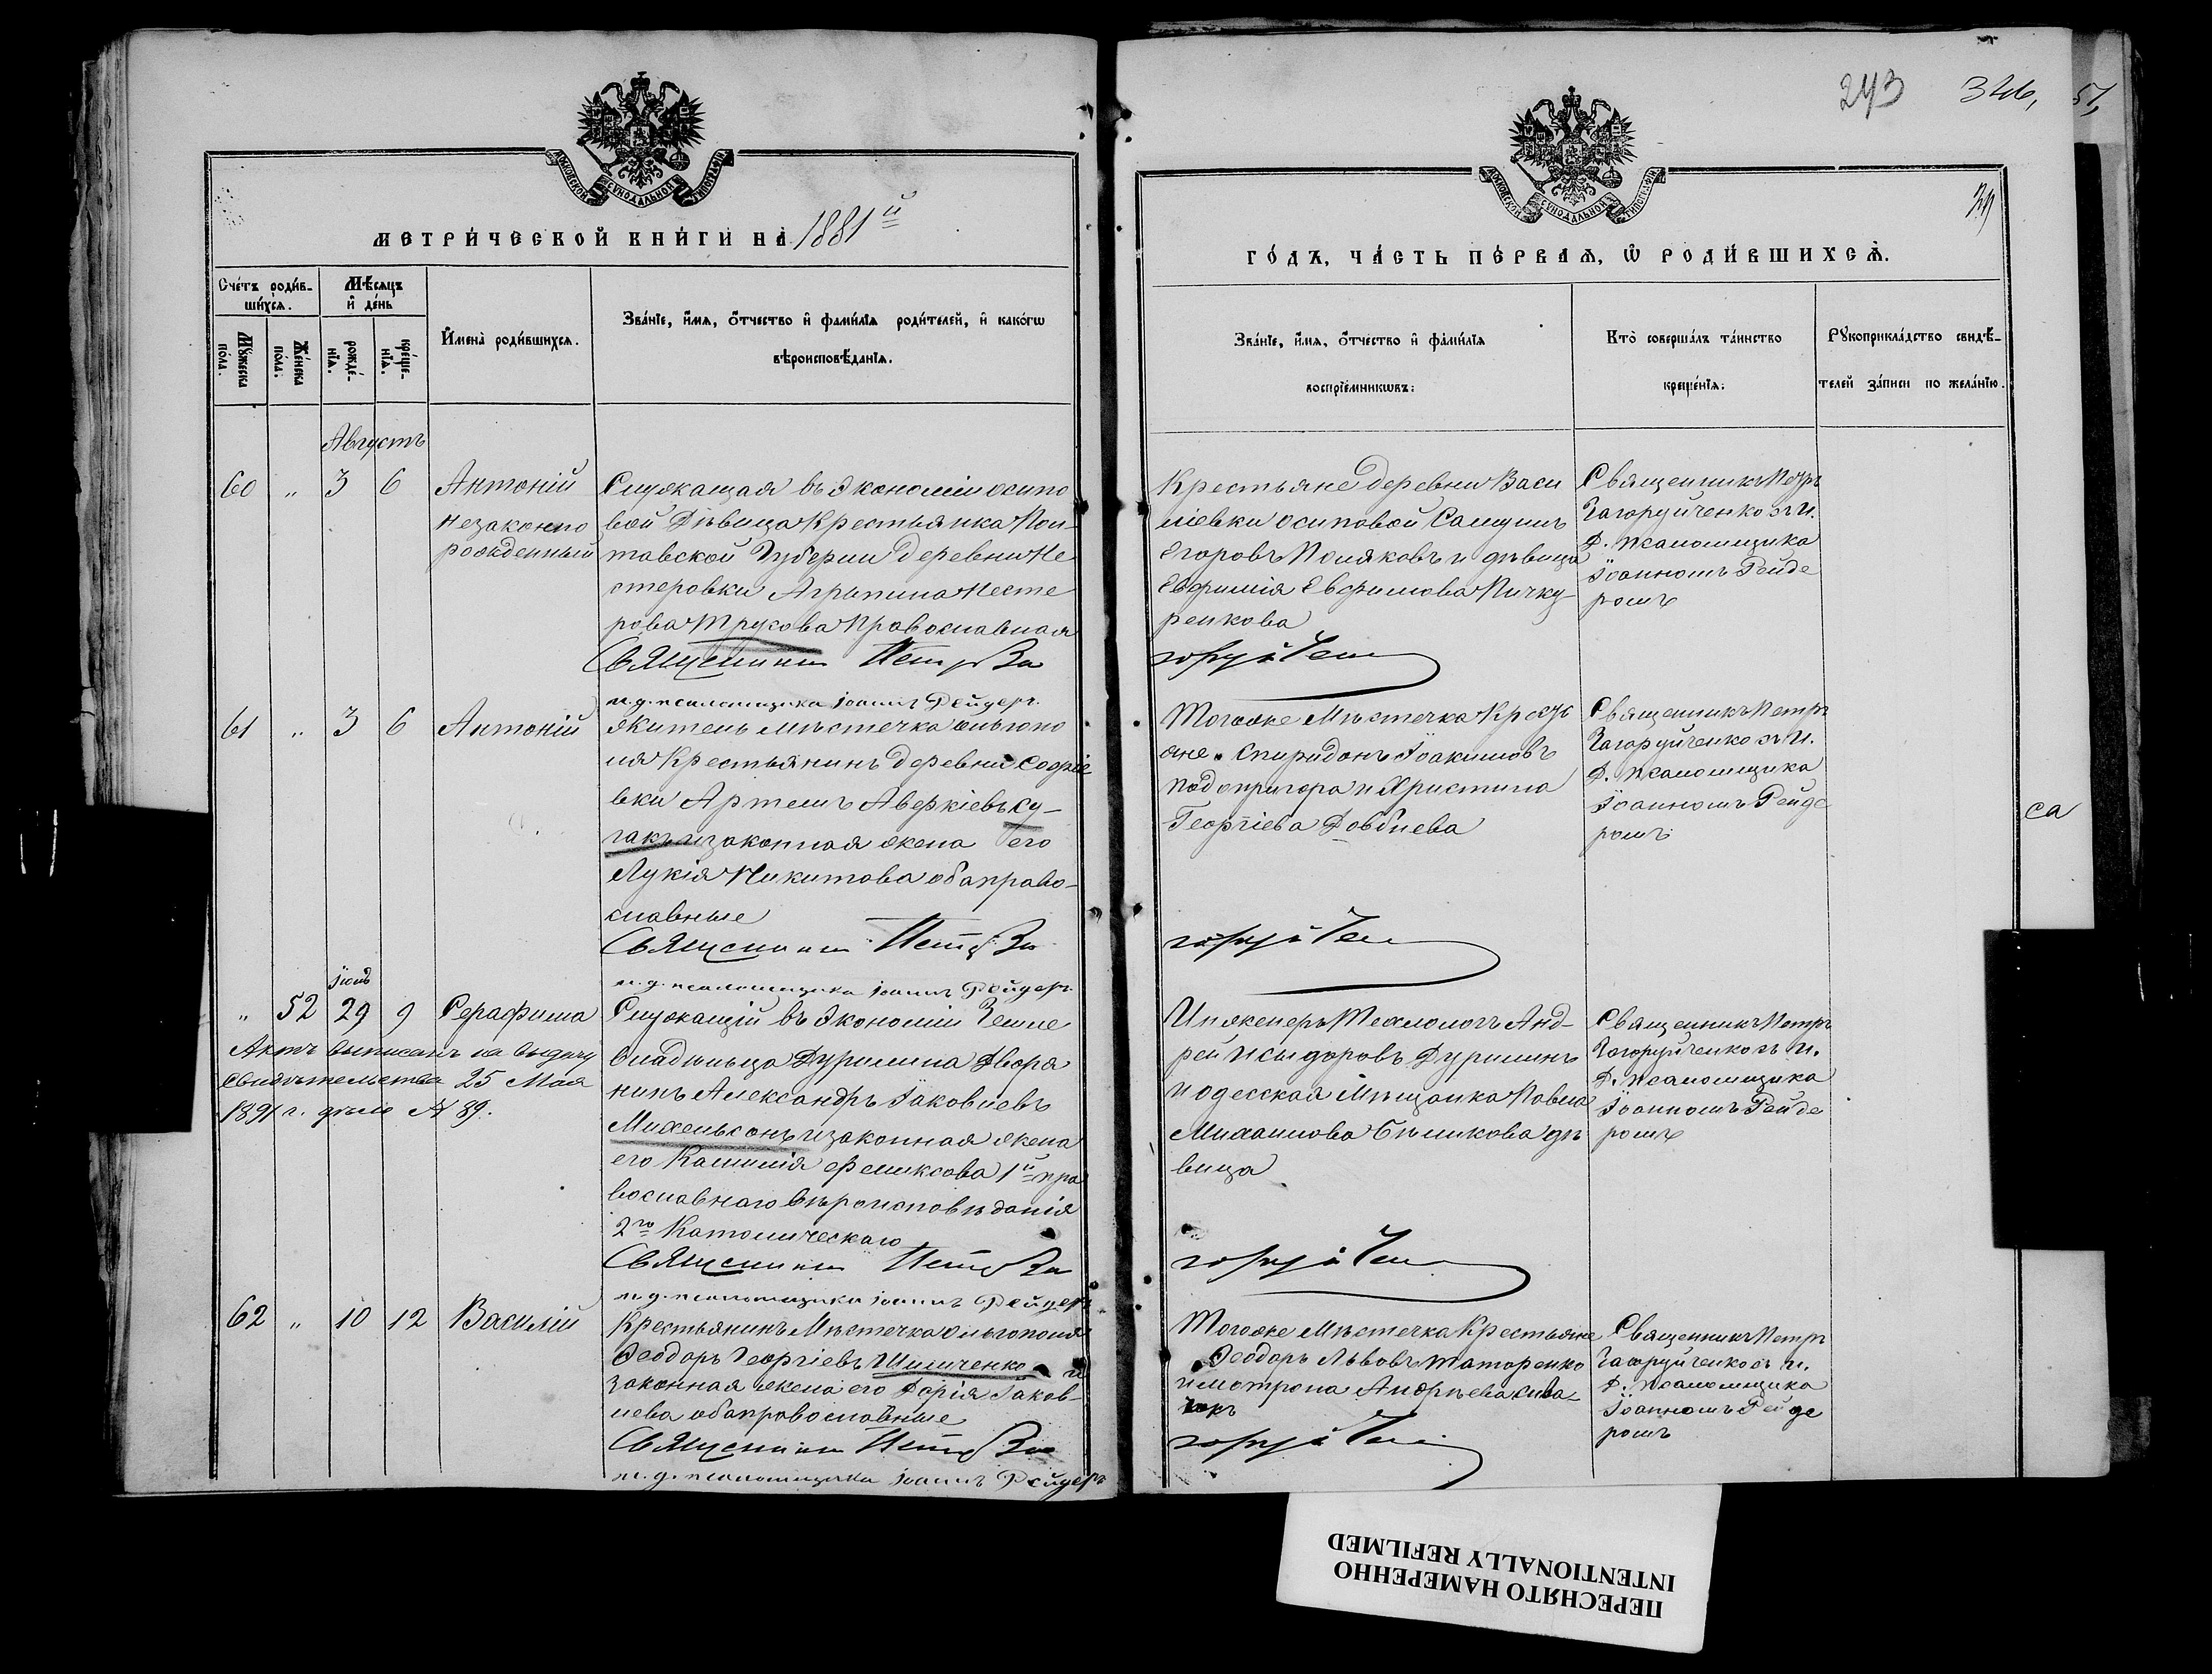 МОСКОВСКОЙ СУНОДАЛЬНОЙ ТИПОГРАФІИ
МЕТРИ́ЧЕСКОЙ КНИ́ГИ НА̀ 1881й
Сче́тъ роди́в-
шихся.
Мѣ́сяцъ
и҆ де́нь
Мꙋ́жеска
по́ла.
Же́нска
по́ла.
рожде́-
нїѧ.
креще́-
нїѧ.
И҆мена̀ роди́вшихся.
Зва́нїе, и҆́мѧ, ѻ҆́тчество и҆ фами́лїѧ роди́телей, и҆ какѡ́гѡ
вѣроисповѣ́данїѧ.
Августъ
60 " 3 6 Антоній
незаконно
рожденный
Служащая въ Экономіи Осипо
вой Дѣвица Крестьянка Пол-
тавской Губерніи деревни Не
стеровки Агрипина Несте
рова Трусова Православная
Священникъ Петръ За
и. д. псаломщика Іоаннъ Рейдеръ.
61 " 3 6 Антоній
житель мѣстечка Ольгопо
ля Крестьянинъ деревни Софіе
вки Артемъ Аверкіевъ Су-
гакъ и законная жена его
Лукія Никитова оба право-
славные
Священникъ Петръ За
и. д. псаломщика Іоаннъ Рейдеръ.
" 52 29 9 Серафима
Актъ выписанъ на выдачу
свидѣтельства 25 Мая
1891 г. дѣло № 89.
Служащій въ Экономіи Земле
владѣльца Дурилина Дворя
нинъ Александръ Іаковлевъ
Михельсонъ и законная жена
его Камилія Феликсова 1й пра
вославнаго вѣроисповѣданія
2го Католическаго
Священникъ Петръ За
и. д. псаломщика Іоаннъ Рейдеръ
62 " 10 12 Василій
Крестьянинъ Мѣстечка Ольгополя
Ѳеодоръ Георгіевъ Шиличенко и
законная жена его Дарія Іаков-
лева оба православные
Священникъ Петръ За
и. д. псаломщика Іоаннъ Рейдеръ
243 346, 51,
МОСКОВСКОЙ СУНОДАЛЬНОЙ ТИПОГРАФІИ
ГО́ДЪ, ЧА́СТЬ ПЕ́РВАѦ, Ѡ҆ РОДИ́ВШИХСѦ̀.
Зва́нїе, и҆́мѧ, ѻ҆́тчество и҆ фами́лїѧ
воспрїе́мникѡвъ:
Кто̀ соверша́лъ та́инство
креще́нїѧ:
Рꙋкоприкла́дство свидѣ́-
телей за́писи по жела́нїю.
Крестьяне деревни Васи
ліевки Осиповой Самуилъ
Егоровъ Поляковъ и дѣвица
Евфимія Евфимова Пичку
ренкова
горуйчен
Священникъ Петръ
Загоруйченко съ И.
Д. Псаломщика
Іоанномъ Рейде
ромъ
Тогоже Мѣстечка Кресть
яне Спиридонъ Іоакимовъ
Подопригора и Христина
Георгіева Довбнева
горуйчен
Священникъ Петръ
Загоруйченко съ И.
Д. Псаломщика
Іоанномъ Рейде
ромъ
са
Инженеръ Технологъ Анд-
рей Исидоровъ Дурилинъ
и одесская Мѣщанка Павла
Михаилова Бѣликова дѣ
вица
горуйчен
Священникъ Петръ
Загоруйченко съ И.
Д. Псаломщика
Іоанномъ Рейде
ромъ
Тогоже Мѣстечка Крестьяне
Ѳеодоръ Львовъ Татаренко
и Матрона Андреева
горуйчен
Священникъ Петръ
Загоруйченко съ И.
Д. Псаломщика
Іоанномъ Рейде
ромъ
ПЕРЕСНЯТО НАМЕРЕННО
INTENTIONALLY REFILMED